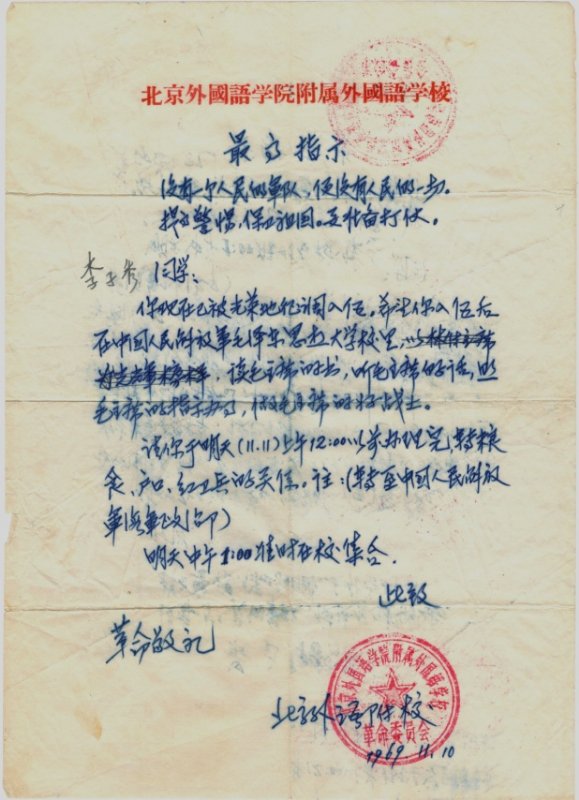 北京外國語学院附属外國語学校
最高指示
没有一个人民的军队，便没有人民的一切。
提高警惕，保卫祖国。要准备打仗。
李 秀 同学：
你现在已被光荣地批准入伍。希望你入伍后
在中国人民解放军毛泽东思想大学校里，
读毛主席的书，听毛主席的话，照
毛主席的指示办事，做毛主席的好战士。
请你于明天(11.11)上午12:00以前办理完，转粮
食、户口、红卫兵的关系。注：(转至中国人民解放
军海军政治部)
明天中午1:00准时在校集合.
此致
革命敬礼
北京外语附校
1969.11.10
北京外國語学院附属外國語学校
革命委员会